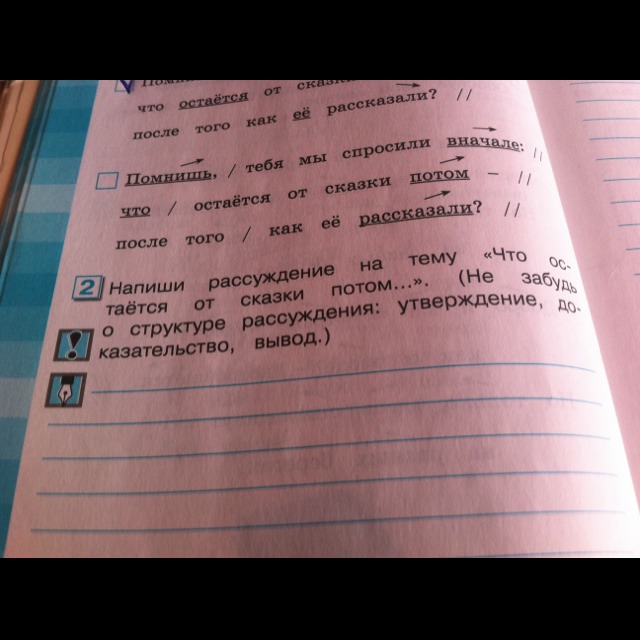 что остаётся от сказки
после того как её рассказали? //
Помнишь, / тебя мы спросили вначале: //
что / остаётся от сказки потом – //
после того / как её рассказали? //
2 Напиши рассуждение на тему «Что ос-
таётся от сказки потом...». (Не забудь
о структуре рассуждения: утверждение, до-
казательство, вывод.)